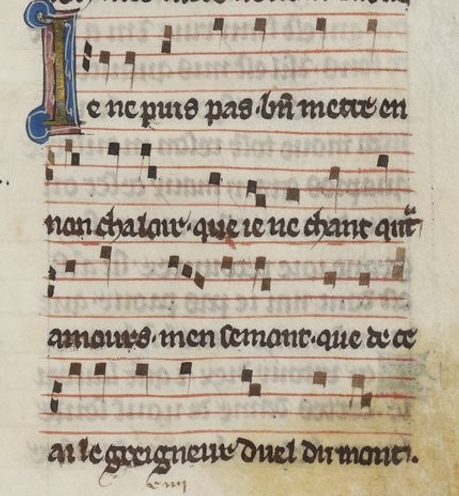 Je ne puis pas bñ mettre en
non chaloir. que ie ne chant qñt
amours. men semont. que de ce
ai le greigneur duel du mont.